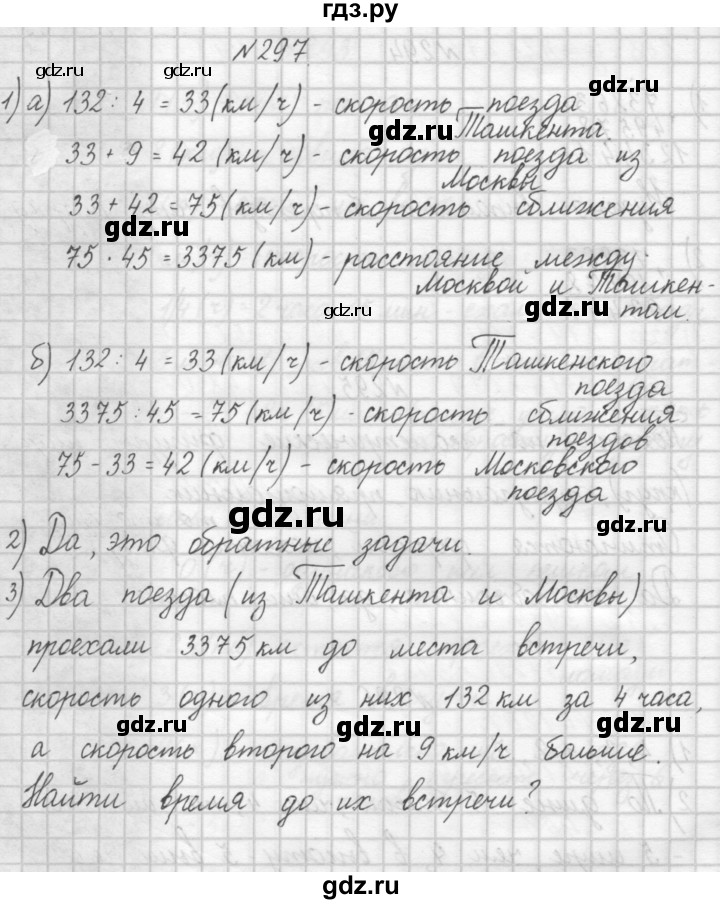 гдз.ру
№297.
1) а) 132 : 4 = 33 (км/ч) - скорость поезда
Ташкента.
33 + 9 = 42 (км/ч) - скорость поезда из
Москвы
33 + 42 = 75 (км/ч) - скорость сближения
75 · 45 = 3375 (км) - расстояние между
Москвой и Ташкен-
том.
б) 132 : 4 = 33 (км/ч) - скорость Ташкенского
поезда
3375 : 45 = 75 (км/ч) - скорость сближения
поездов
75 - 33 = 42 (км/ч) - скорость Московского
поезда
2) Да, это обратные задачи.
3) Два поезда (из Ташкента и Москвы)
проехали 3375 км до места встречи,
скорость одного из них 132 км за 4 часа,
а скорость второго на 9 км/ч больше.
Найти время до их встречи?
gdz.ru